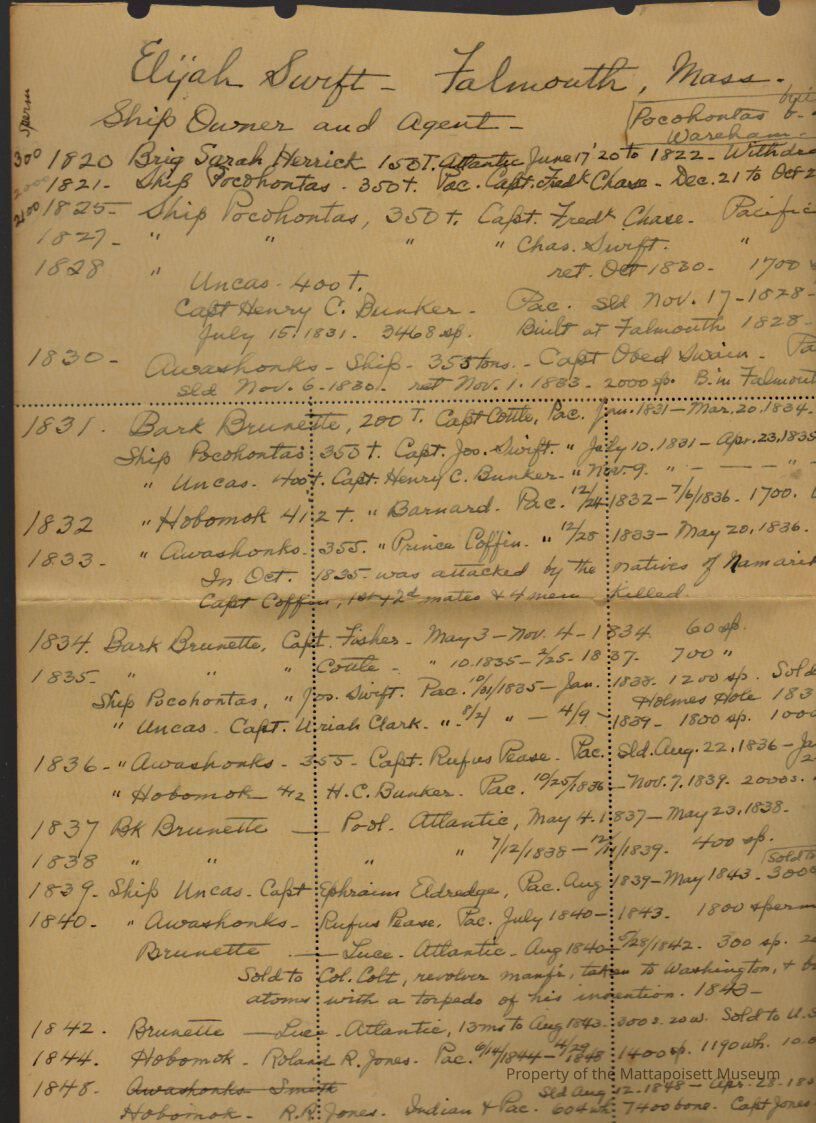 sperm
Elijah Swift - Falmouth, Mass.
Ship Owner and Agent -
Pocohontas
Wareham -
300 1820 Brig Sarah Herrick 150T. Atlantic June 17 '20 to 1822 - Withdr
2000 1821 - Ship Pocohontas - 350t. Pac. Capt. Fredk Chase - Dec. 21 to Oct 2
2100 1825 - Ship Pocohontas, 350t. Capt. Fredk Chase. Pacific
1827 - " " " " Chas. Swift. "
1828 " ret. Oct 1830 - 1700
Uncas - 400t.
Capt Henry C. Bunker - Pac. sld Nov. 17 - 1828 -
July 15, 1831. 3468 sp. Built at Falmouth 1828 -
1830 - Awashonks - Ship - 355 tons. - Capt Obed Swain - Pa
sld Nov. 6 - 1830. ret Nov. 1. 1833 - 2000 sp. B. in Falmout
1831. Bark Brunette, 200T. Capt Cottle, Pac. Jan. 1831 - Mar. 20, 1834.
Ship Pocohontas 350t. Capt. Jos. Swift. " July 10. 1831 - Apr. 23, 1835
" Uncas. 400t. Capt. Henry C. Bunker - " Nov. 9. " - — — " -
1832 " Hobomok 412t. " Barnard. Pac. 12/24 1832 - 7/6/1836 - 1700.
1833 - " Awashonks. 355. " Prince Coffin. " 12/28 1833 - May 20, 1836.
In Oct. 1835 - was attacked by the natives of Namarik
Capt Coffin, 1st & 2d mates & 4 men killed.
1834. Bark Brunette, Capt. Fisher - May 3 - Nov. 4 - 1834. 60 sp.
1835 - " " " Cottle - " 10. 1835 - 2/25 - 1837. 700 "
Ship Pocohontas, " Jos. Swift. Pac. 1835 - Jan. 1838. 1200 sp. Sold
Holmes Hole 183
" Uncas - Capt. Uriah Clark. " 8/4 " - 4/9 - 1839 - 1800 sp. 1000
1836 - " Awashonks - 355 - Capt. Rufus Pease. Pac. Sld. Aug. 22, 1836 - Ja
" Hobomok - 412 H.C. Bunker. Pac. 10/25/1836 - Nov. 7, 1839. 2000 s.
1837 Bk Brunette — Pool. Atlantic, May 4. 1837 - May 23, 1838.
1838 " " " " 7/12/1838 - 1839. 400 sp.
Sold to
1839 - Ship Uncas - Capt Ephraim Eldredge, Pac. Aug 1839 - May 1843 - 300
1840. " Awashonks - Rufus Pease. Pac. July 1840 - 1843. 1800 sperm
Brunette — Luce - Atlantic - Aug 1840 - 5/28/1842. 300 sp.
Sold to Col. Colt, revolver manfr, taken to Washington, & b
atoms with a torpedo of his invention. 1843 -
1842. Brunette — Luce - Atlantic, 13 ms to Aug 1843. 300 s. 20 w. Sold to U.S
1844. Hobomok - Roland R. Jones - Pac. 6/14/1844 - 4/29/1848 1400 sp. 1190 wh.
1848 - Awashonks Smith Sld Aug 12 - 1848 - Apr. 28 - 185
Hobomok - R.R. Jones - Indian & Pac. 604 wh 7400 bone. Capt Jones
Property of the Mattapoisett Museum